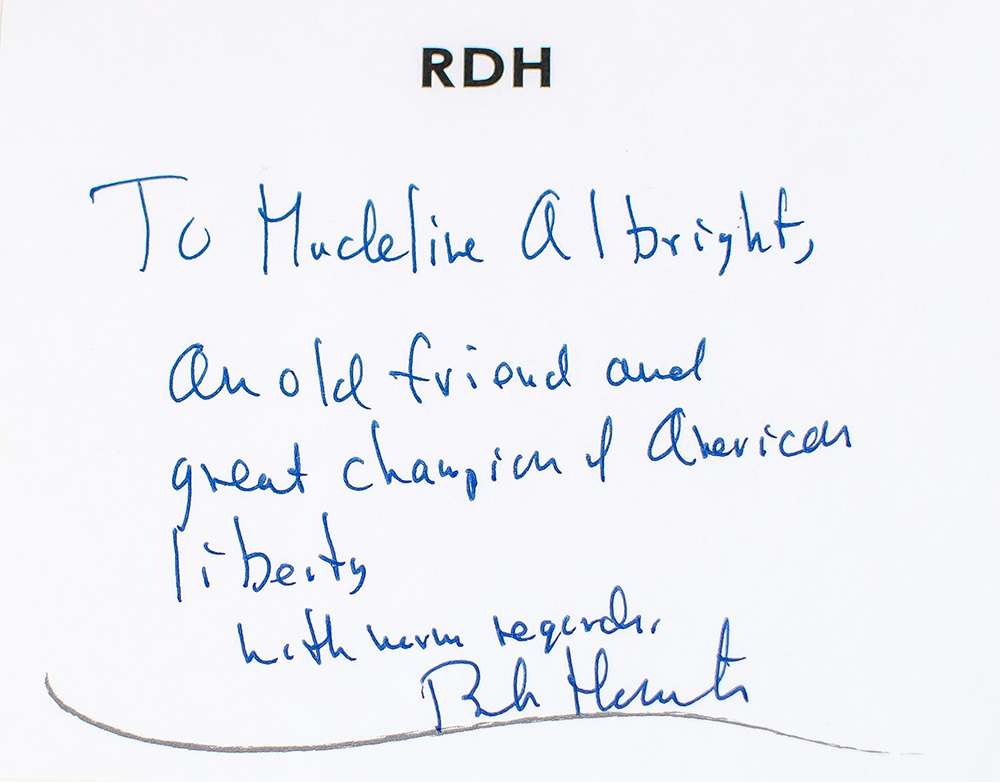 RDH
To Madeline Albright,
An old friend and
great champion of American
liberty
with warm regards,
Bob Hormats